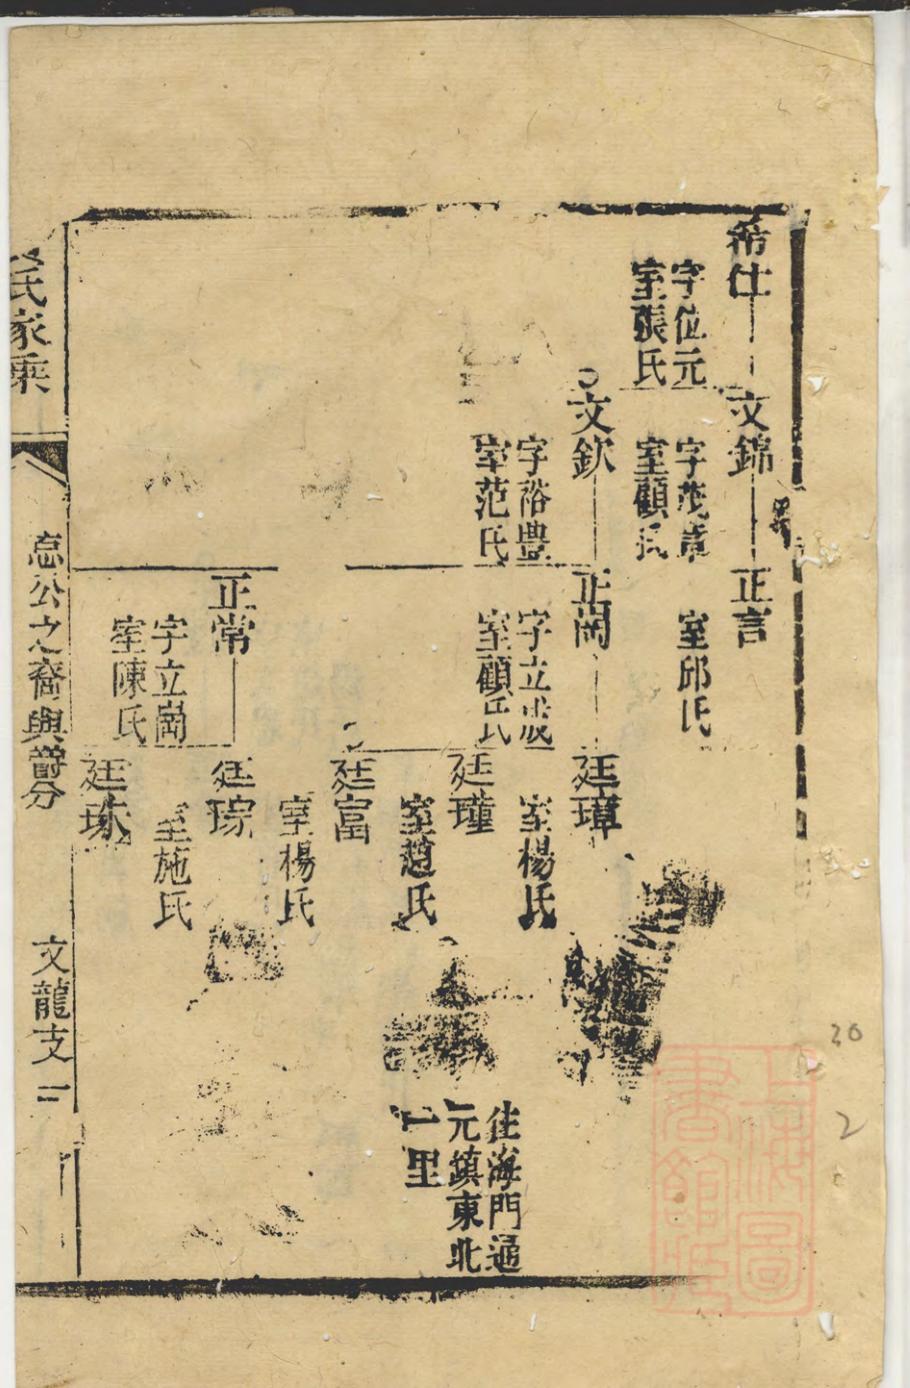 希仕
字位元
室張氏
文錦
字茂章
室顧氏
正言
室邱氏
文欽
字裕豊
室范氏
正崗
字立成
室顧氏
廷璋
室楊氏
廷瑾
室趙氏
廷富
室楊氏
正常
字立崗
室陳氏
廷琮
室施氏
廷珠
住海門通
元鎮東北
一里
氏家乘
忘公之裔與爵分
文龍支
二
上海圖
書館藏
30
2